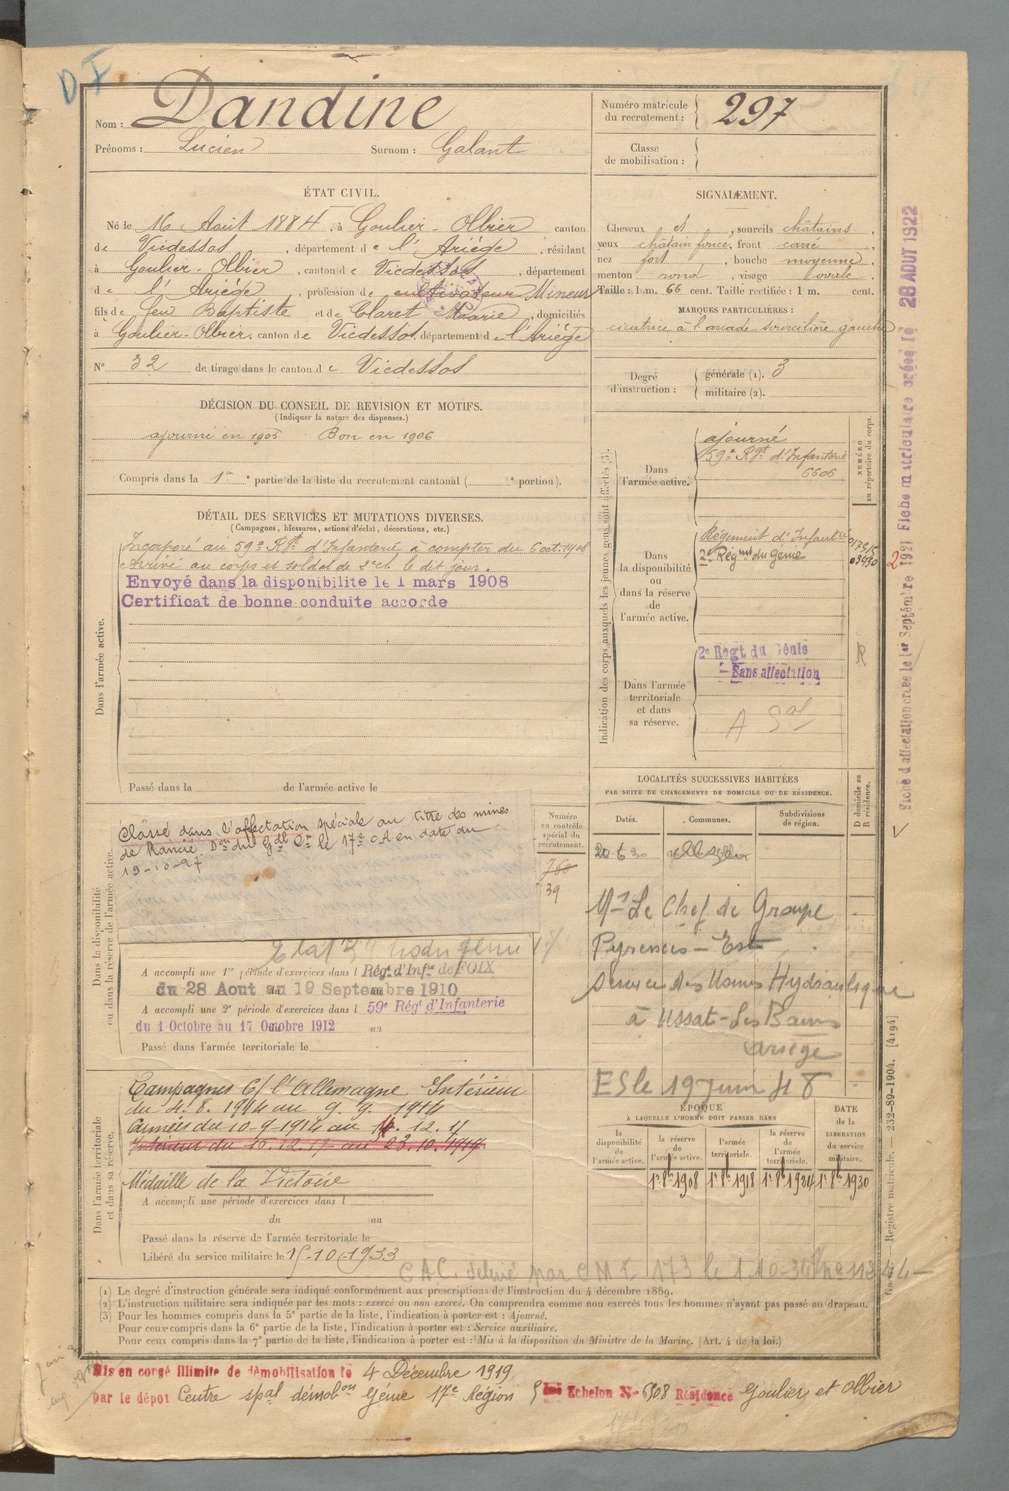 D I
Nom : Dandine
Prénoms : Lucien Surnom : Galant
Numéro matricule du recrutement : 297
Classe de mobilisation :
ÉTAT CIVIL.
Né le 16 Août 1884, à Goulier-Olbier canton
de Vicdessos, département de l'Ariége, résidant
à Goulier-Olbier, canton de Vicdessos, département
de l'Ariége, profession de cultivateur Mineur
fils de feu Baptiste et de Claret Marie, domiciliés
à Goulier-Olbier, canton de Vicdessos, département de l'Ariége
N° 32 de tirage dans le canton de Vicdessos
SIGNALEMENT.
Cheveux et, sourcils châtains,
yeux châtain foncé, front carré,
nez fort, bouche moyenne,
menton rond, visage ovale.
Taille : 1 m. 66 cent. Taille rectifiée : 1 m. cent.
MARQUES PARTICULIÈRES :
cicatrice à l'arcade sourcilière gauche
Degré d'instruction : générale (1). 3
militaire (2).
DÉCISION DU CONSEIL DE REVISION ET MOTIFS.
(Indiquer la nature des dispenses.)
ajourné en 1905 Bon en 1906
Compris dans la 1re partie de la liste du recrutement cantonal ( e portion).
DÉTAIL DES SERVICES ET MUTATIONS DIVERSES.
(Campagnes, blessures, actions d'éclat, décorations, etc.)
Dans l'armée active.
Incorporé au 59e Rgt d'Infanterie à compter du 6 oct. 1906
Arrivé au corps et soldat de 2e cl. le dit jour.
Envoyé dans la disponibilite le 1 mars 1908
Certificat de bonne conduite accorde
Passé dans la de l'armée active le
Indication des corps auxquels les jeunes gens sont affectés (3).
NUMÉRO au répertoire du corps.
Dans l'armée active.
ajourné
59e Rgt d'Infanterie
6606
Dans la disponibilité ou dans la réserve de l'armée active.
Régiment d'Infanterie
2e Régmt du Génie
Dans l'armée territoriale et dans sa réserve.
2e Regt du Génie
Sans affectation
LOCALITÉS SUCCESSIVES HABITÉES
PAR SUITE DE CHANGEMENTS DE DOMICILE OU DE RÉSIDENCE.
D domicile ou R résidence.
Dates. Communes. Subdivisions de région.
20-6-30
Mr Le Chef de Groupe
Pyrenées-Est
Service des Usines Hydraulique
à Ussat-Les Bains
Ariège
ES le 19 juin 48
Dans la disponibilité ou dans la réserve de l'armée active.
Numéro au contrôle spécial du recrutement.
760
39
Classé dans l'affectation spéciale au titre des mines
de Rancié. Don du Gal Ct le 17e CA en date du
19-10-27
A accompli une 1re période d'exercices dans l Rég. d'Infie de FOIX
du 28 Aout au 19 Septembre 1910
A accompli une 2e période d'exercices dans l 59e Régt d'Infanterie
du 1 Octobre au 17 Octobre 1912
Passé dans l'armée territoriale le
Dans l'armée territoriale et dans sa réserve.
Campagnes C/ l'Allemagne Intérieur
du 4.8.1914 au 9.9.1914
Armées du 10-9-1914 au
Médaille de la Victoire
A accompli une période d'exercices dans l
du au
Passé dans la réserve de l'armée territoriale le
Libéré du service militaire le 15-10-1933
ÉPOQUE À LAQUELLE L'HOMME DOIT PASSER DANS
la disponibilité de l'armée active. la réserve de l'armée active. l'armée territoriale. la réserve de l'armée territoriale.
DATE de la LIBÉRATION du service militaire.
1r 8bre 1908 1r 8bre 1918 1r 8bre 1924 1r 8bre 1930
(1) Le degré d'instruction générale sera indiqué conformément aux prescriptions de l'instruction du 4 décembre 1889.
(2) L'instruction militaire sera indiquée par les mots : exercé ou non exercé. On comprendra comme non exercés tous les hommes n'ayant pas passé au drapeau.
(3) Pour les hommes compris dans la 5e partie de la liste, l'indication à porter est : Ajourné.
Pour ceux compris dans la 6e partie de la liste, l'indication à porter est : Service auxiliaire.
Pour ceux compris dans la 7e partie de la liste, l'indication à porter est : Mis à la disposition du Ministre de la Marine. (Art. 4 de la loi.)
Mis en congé illimité de démobilisation le 4 Décembre 1919
par le dépôt Centre spal démobon Génie 17e Région 5ème Echelon N° 6908 Résidence Goulier et Olbier
Fiche d'affectation créée le 1er Septembre 1921 Fiche matriculaire créée le 28 AOUT 1922
Registre matricule. — 232-89-1904. [4194]